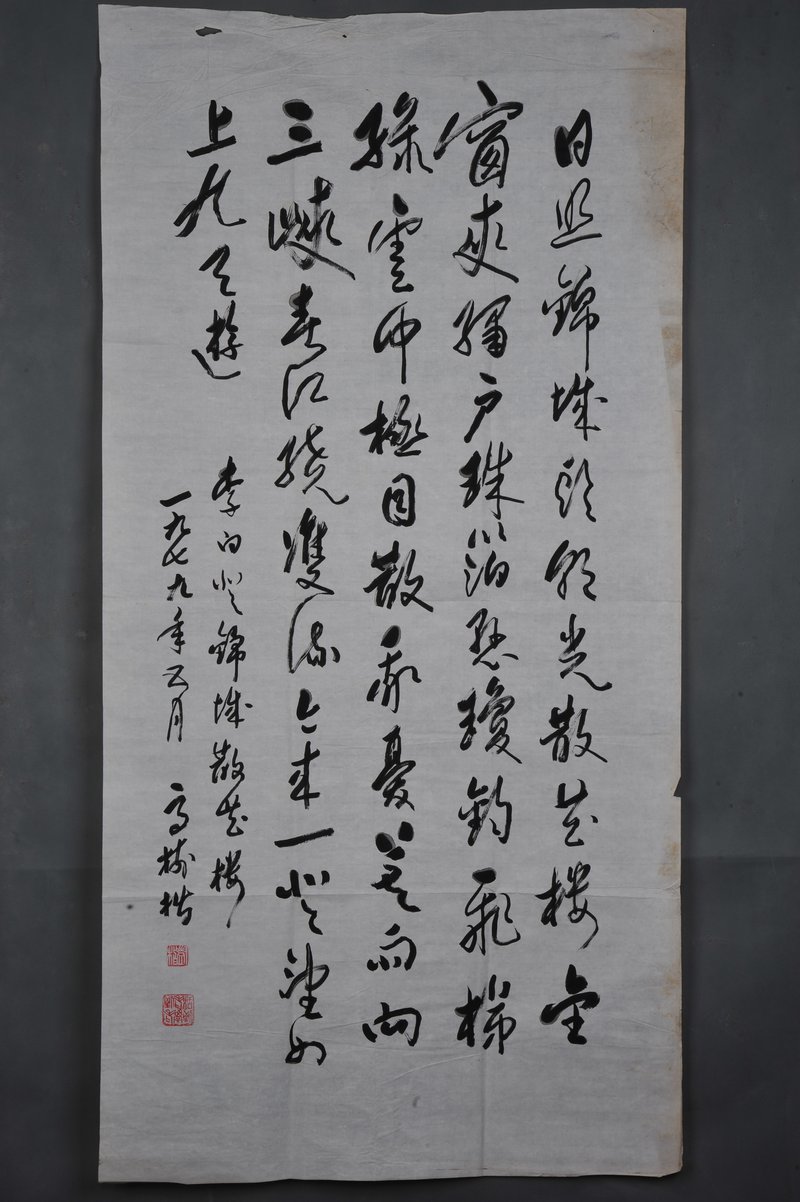 日照錦城頭朝光散花樓金
窗夾繡户珠箔懸瓊鈎飛梯
綠雲中極目散我憂暮雨向
三峽春江繞雙流今來一登望如
上九天遊
李白登錦城散花樓
一九七九年五月 高樹楷